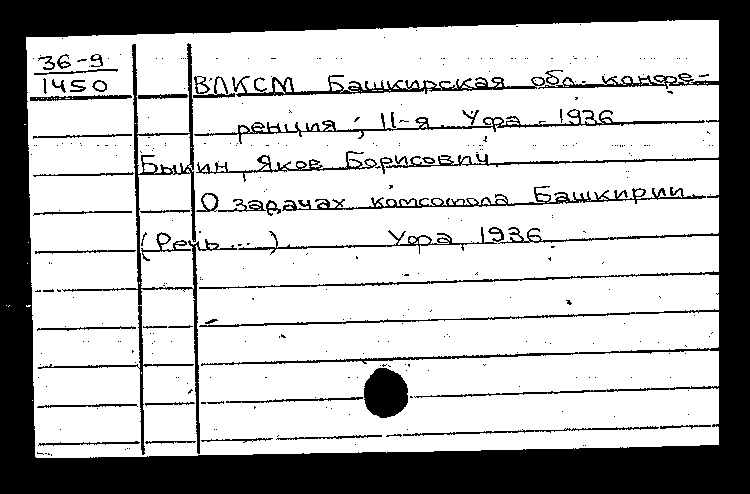 36-9
1450
ВЛКСМ Башкирская обл. конфе-
ренция, II-я. Уфа - 1936
Быкин, Яков Борисович
О задачах комсомола Башкирии
(Речь ...). Уфа, 1936.